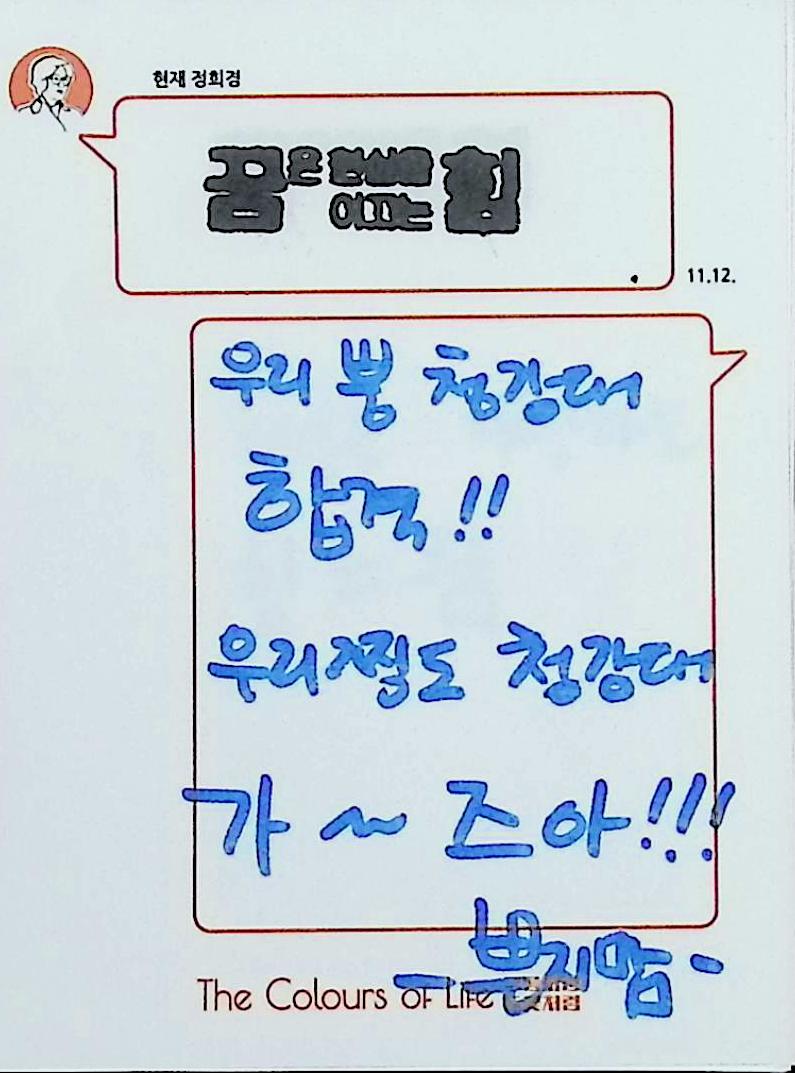 현재 정희경
꿈은 현실을
이끄는 힘
11.12.
우리 뿡 청강대
합격!!
우리 찍도 청강대
가 ~ 즈아!!!
- 뿡지맘 -
The Colours of Life